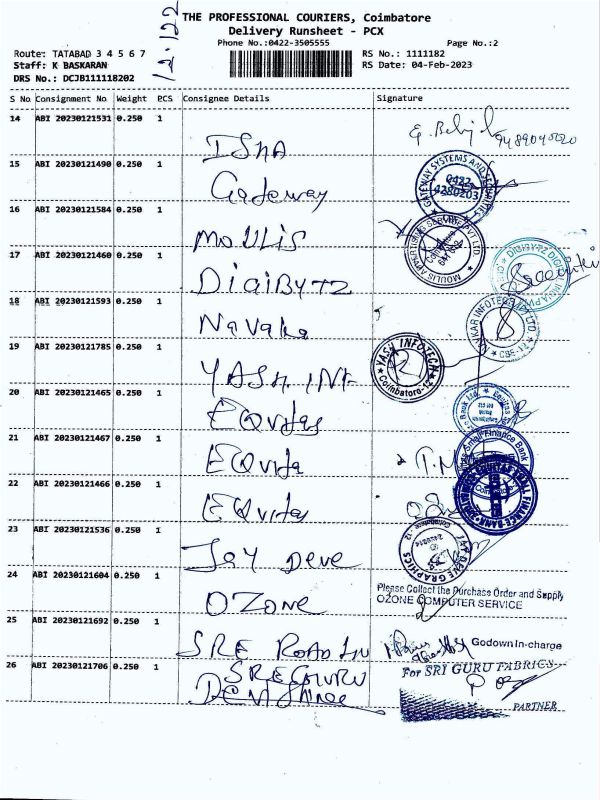 12.122
THE PROFESSIONAL COURIERS, Coimbatore
Delivery Runsheet - PCX
Phone No.:0422-3505555
Page No.:2
Route: TATABAD 3 4 5 6 7
RS No.: 1111182
Staff: K BASKARAN
RS Date: 04-Feb-2023
DRS No.: DCJB111118202
S No Consignment No Weight PCS Consignee Details Signature
14 ABI 20230121531 0.250 1
ISHA
9489040020
15 ABI 20230121490 0.250 1
Gateway
GATEWAY SYSTEMS AND
0422
4280203
16 ABI 20230121584 0.250 1
MOULIS
MOULIS ADVERTISING SERVICE PVT LTD.
Coimbatore
17 ABI 20230121460 0.250 1
DIGIBYTZ
DIGIBYTZ DIGI
18 ABI 20230121593 0.250 1
Navaka
INFOTECH PVT LTD.
CBE-12
19 ABI 20230121785 0.250 1
YASH INF
YASH INFOTECH
Coimbatore-12
20 ABI 20230121465 0.250 1
EQuitas
21 ABI 20230121467 0.250 1
EQuita
Small Finance Bank
22 ABI 20230121466 0.250 1
EQuitas
EQUITAS SMALL FINANCE BANK
23 ABI 20230121536 0.250 1
Jay Deve
JAY DEVE GRAPHICS
Coimbatore - 12
24 ABI 20230121604 0.250 1
OZone
Please Collect the Purchase Order and Supply
OZONE COMPUTER SERVICE
25 ABI 20230121692 0.250 1
SRE ROAD LIN
Godown In-charge
26 ABI 20230121706 0.250 1
SREGURU
For SRI GURU FABRICS
PARTNER